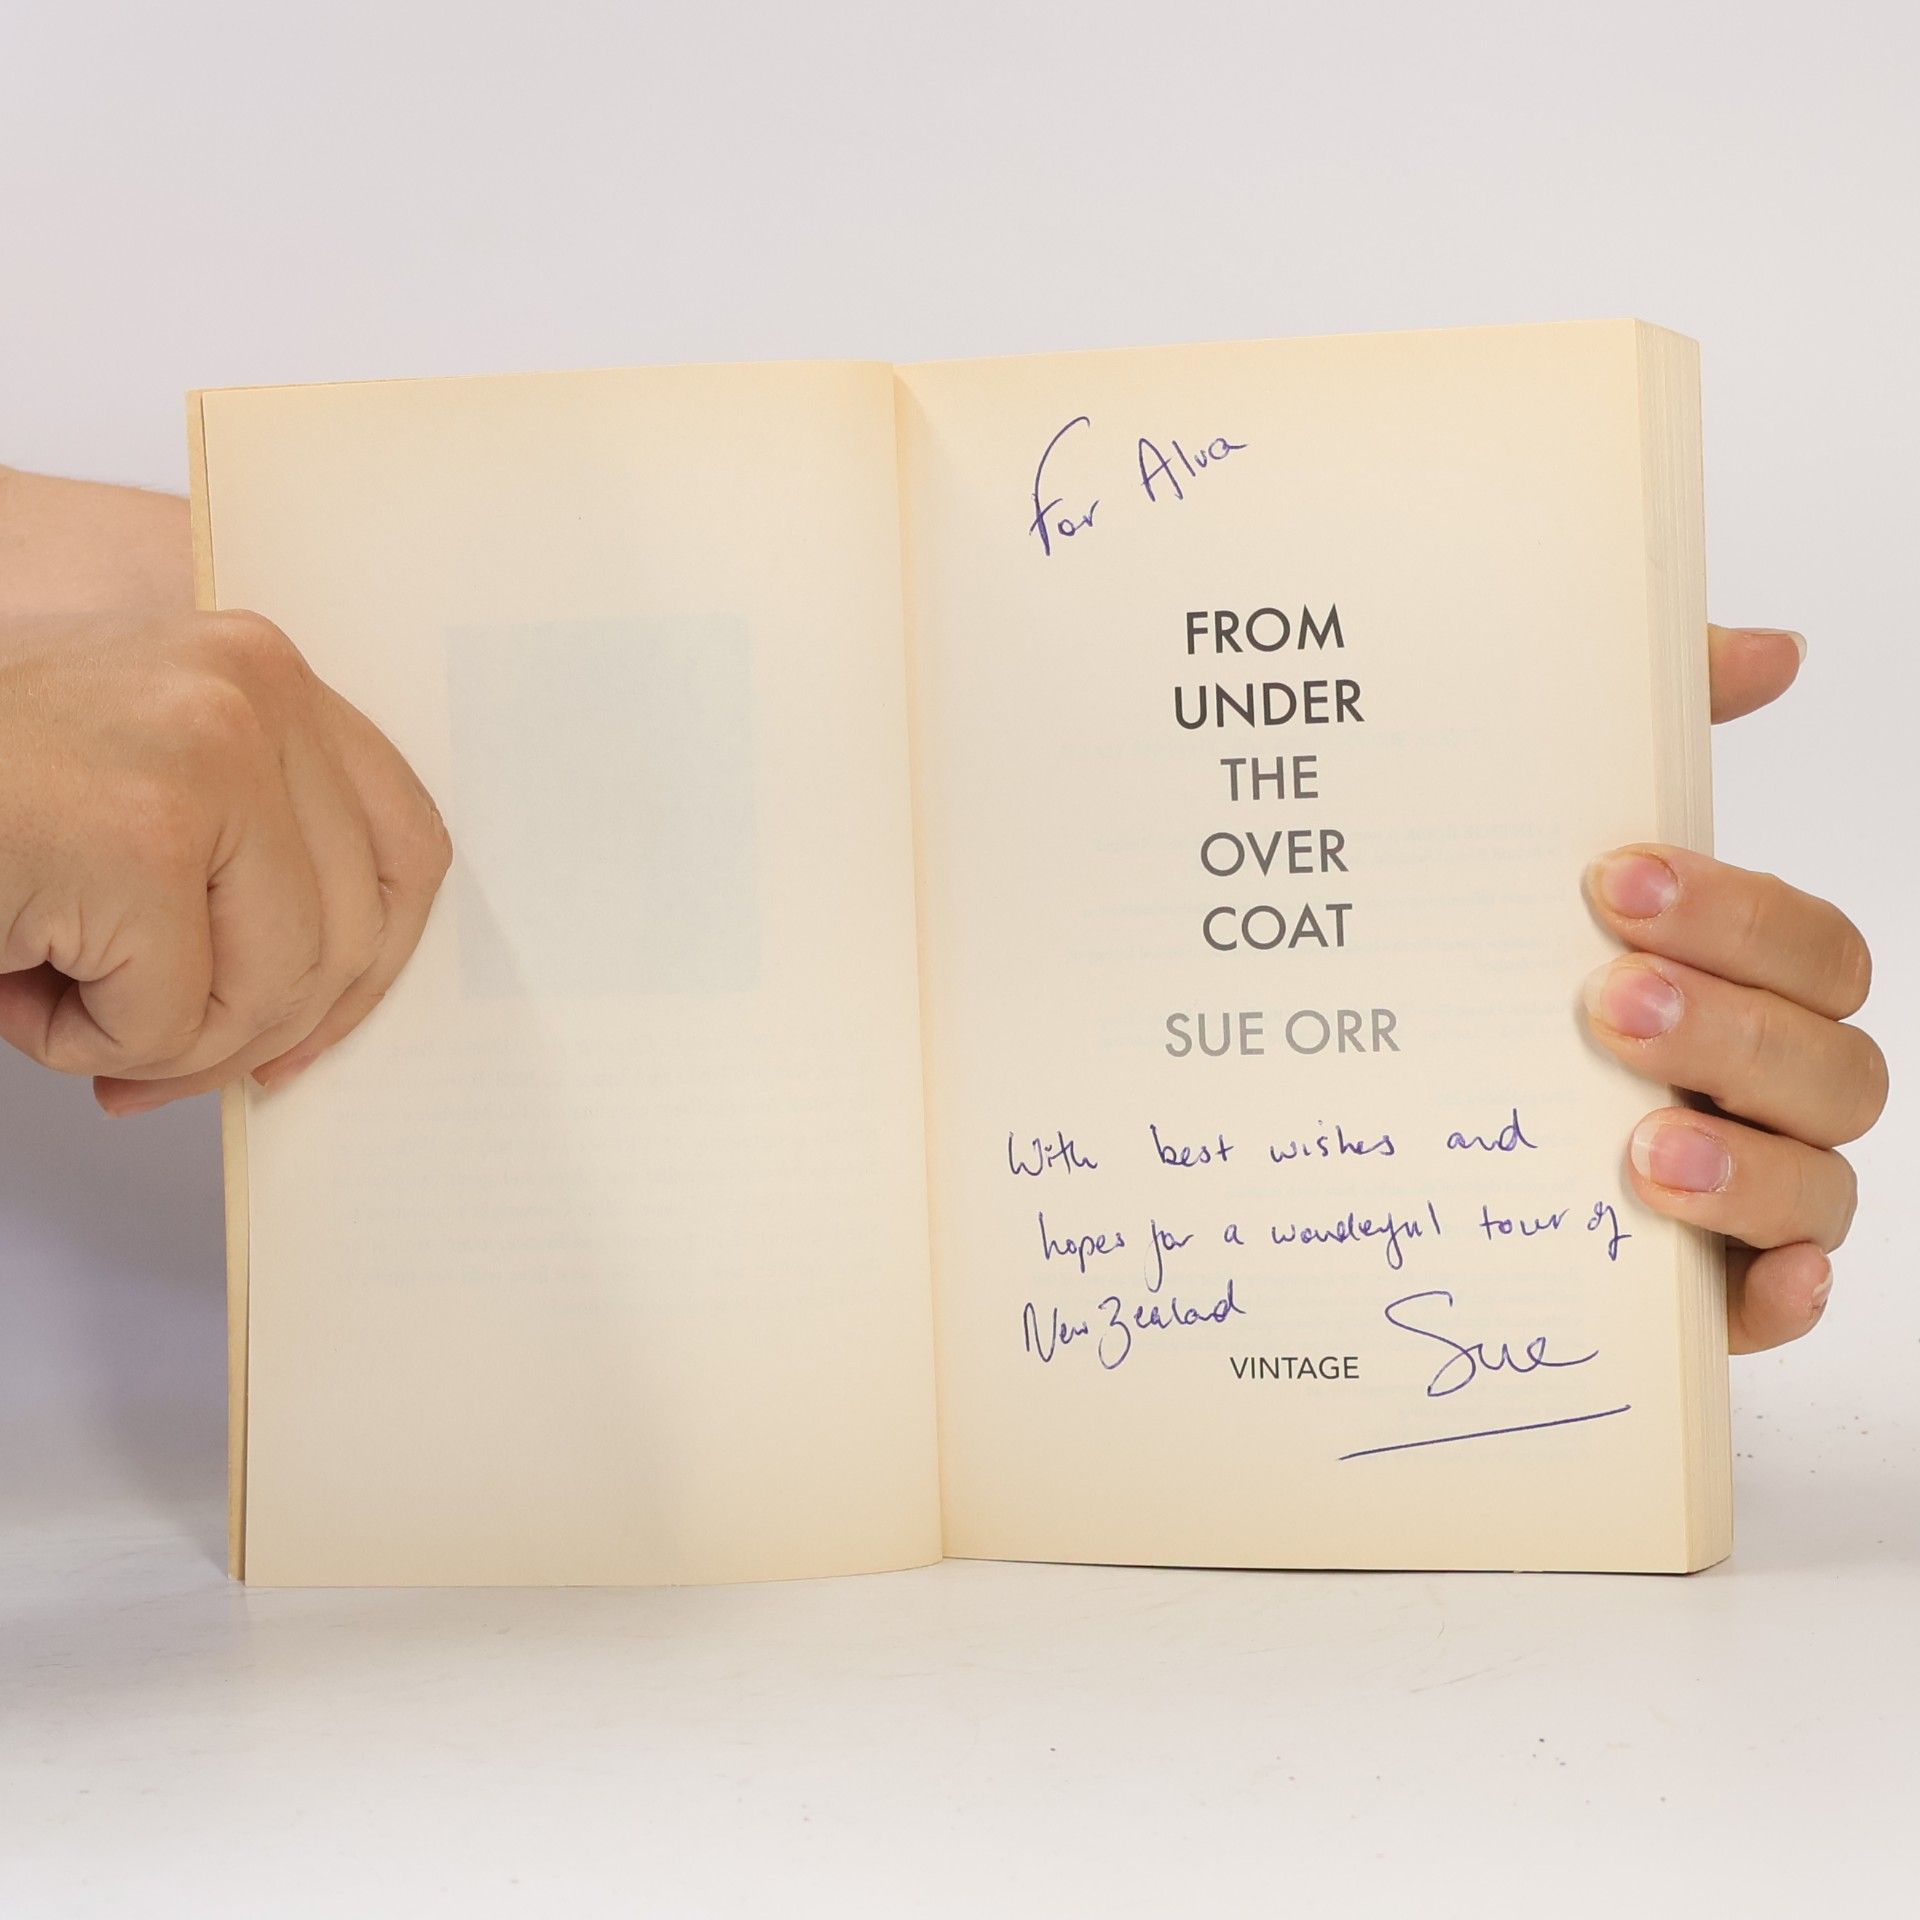 For Alva
FROM
UNDER
THE
OVER
COAT
SUE ORR
With best wishes and
hopes for a wonderful tour of
New Zealand
VINTAGE
Sue